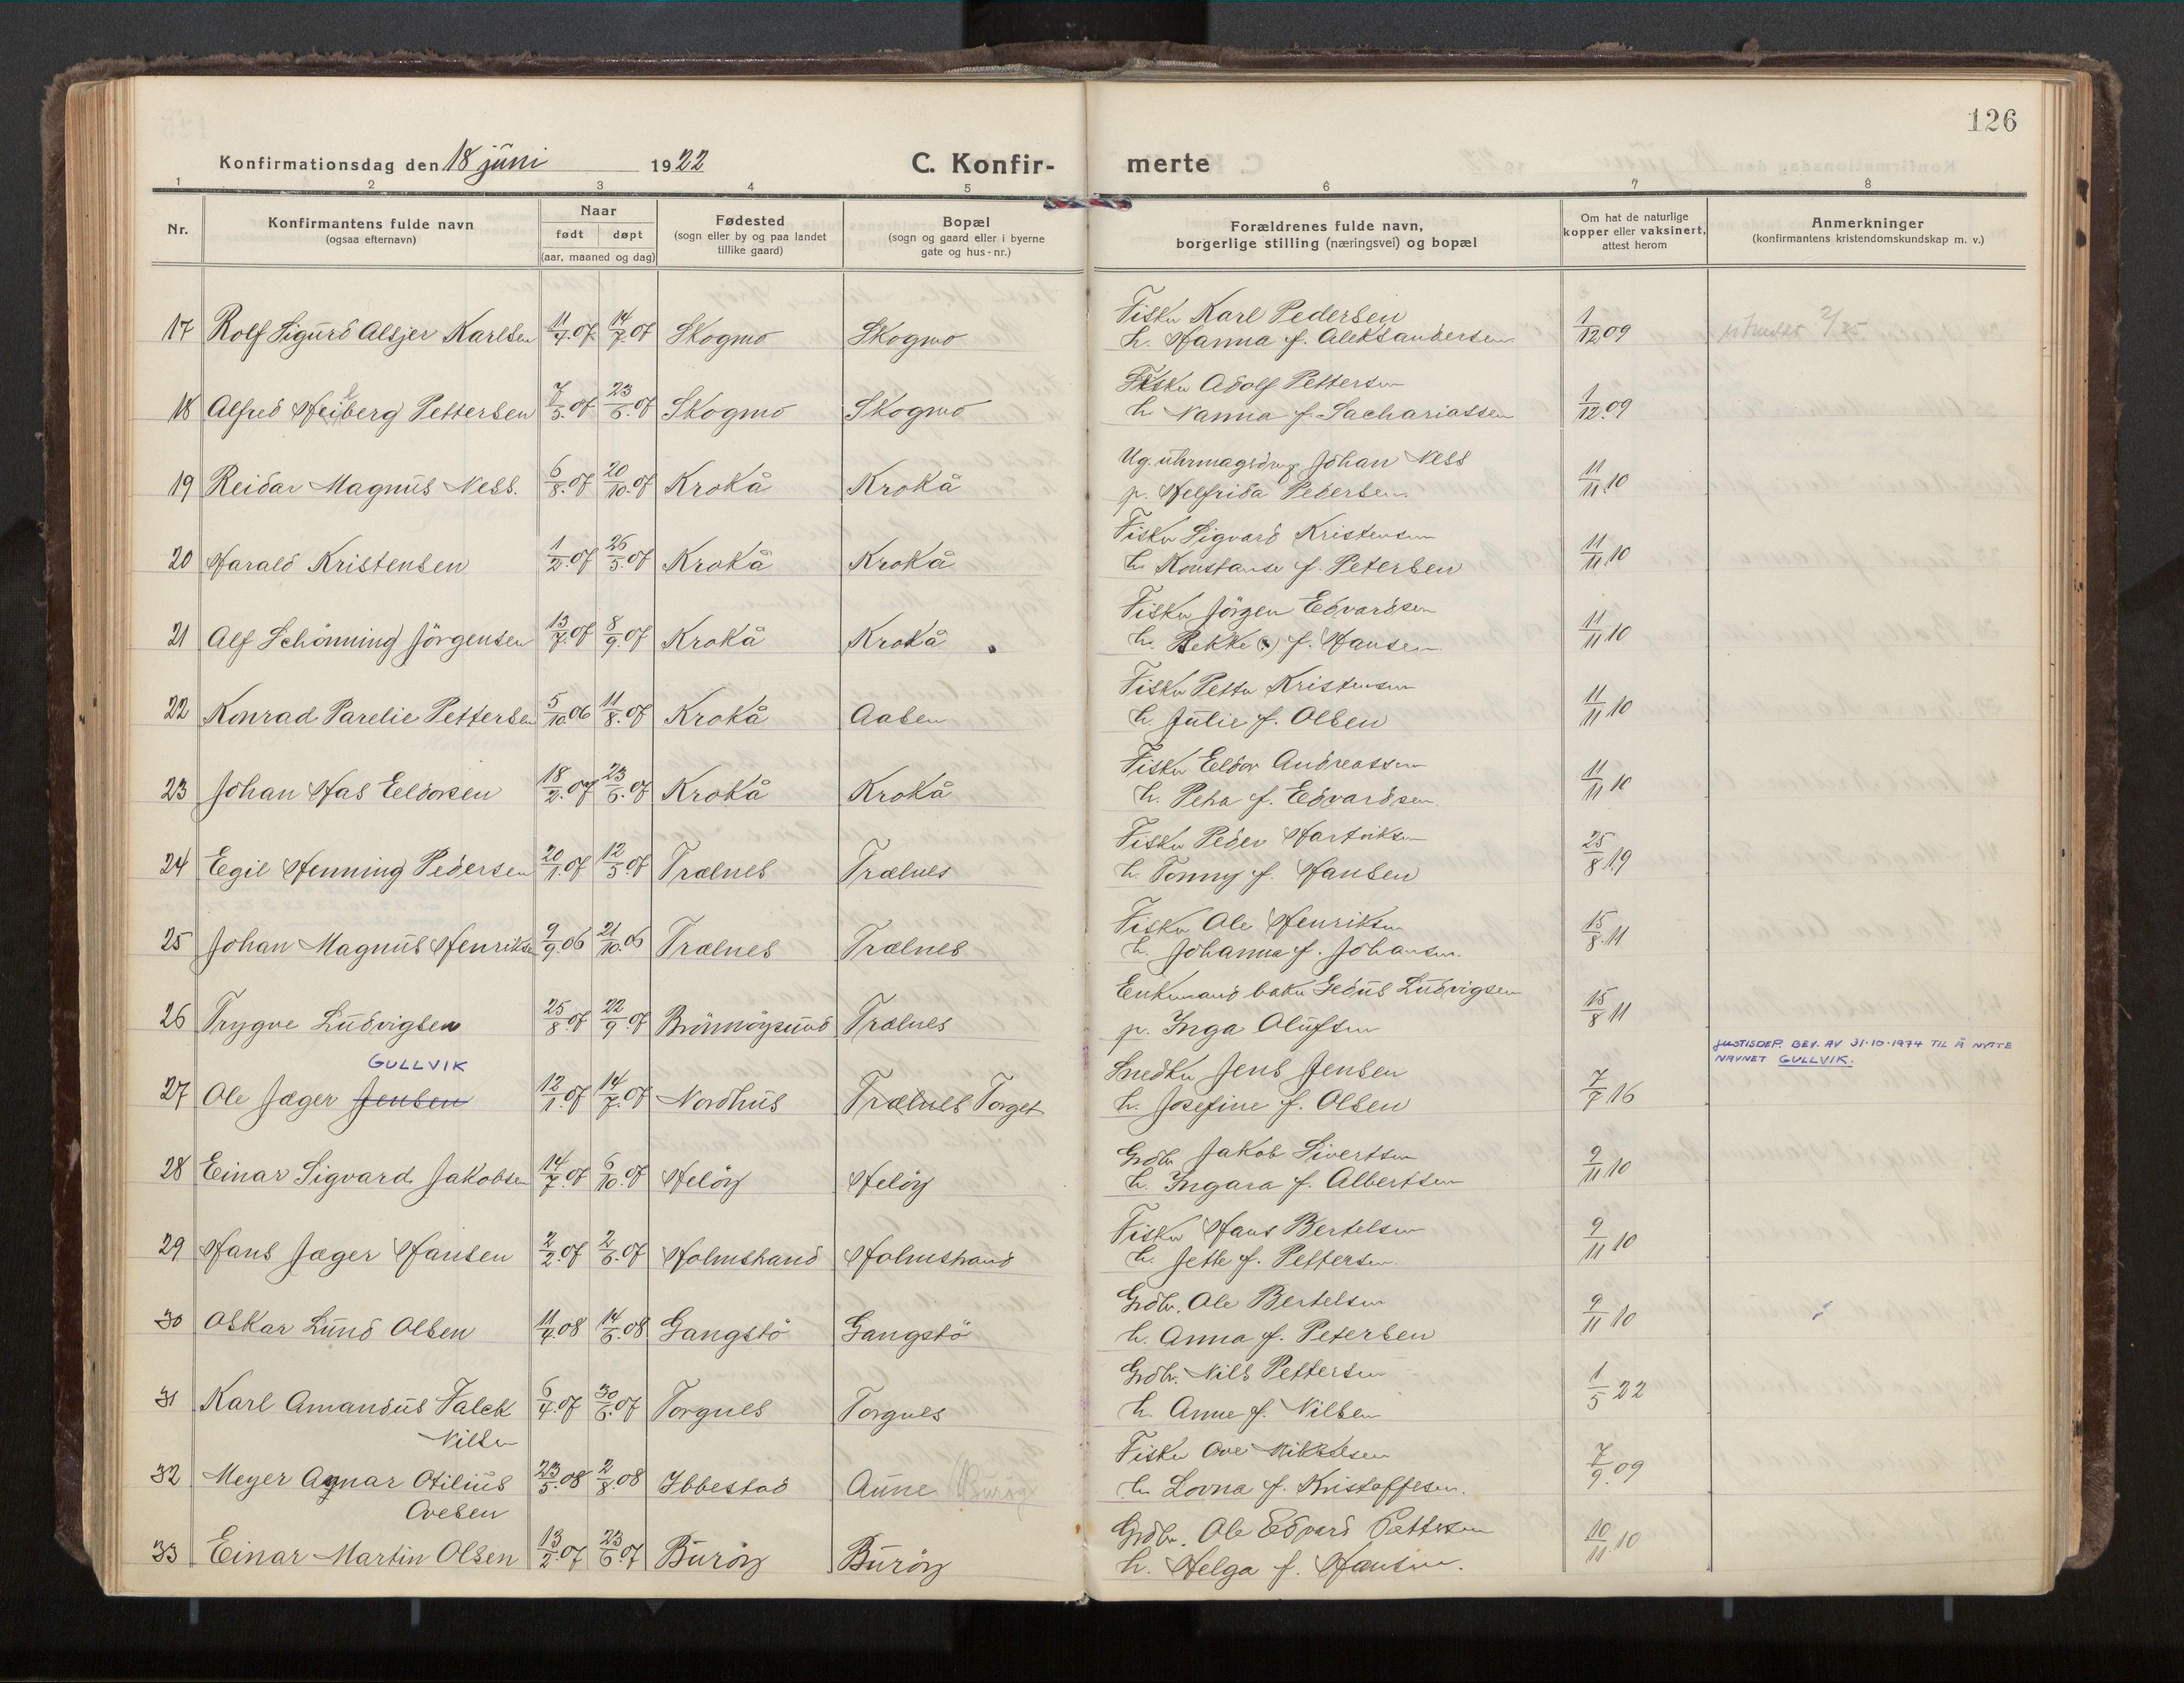 126
Konfirmationsdag den 18 juni 1922
C. Konfir-
merte
1 2 3 4 5 6 7 8
Nr.
Konfirmantens fulde navn
(ogsaa efternavn)
Naar
født døpt
(aar, maaned og dag)
Fødested
(sogn eller by og paa landet
tillike gaard)
Bopæl
(sogn og gaard eller i byerne
gate og hus-nr.)
Forældrenes fulde navn,
borgerlige stilling (næringsvei) og bopæl
Om hat de naturlige
kopper eller vaksinert,
attest herom
Anmerkninger
(konfirmantens kristendomskundskap m. v.)
Fisker Karl Pedersen
17 Rolf Sigurd Alsjer Karlsen 11/4.07 14/7.07 Skogmo Skogmo h. Hanna f. Aleksandersen 1/12 09 2/25
Fisker Adolf Pettersen
18 Alfred Heiberg Pettersen 7/5.07 23/6.07 Skogmo Skogmo h. Nanna f. Sachariassen 1/12.09
Ug. uhrmager Johan Ness
19 Reidar Magnus Ness. 6/8.07 20/10.07 Krokå Krokå p. Helfrida Pedersen. 11/11.10
Fisker Sigvard Kristensen
20 Harald Kristensen 1/2.07 26/5.07 Krokå Krokå h. Konstanse f. Petersen 11/11.10
Fisker Jörgen Edvardsen
21 Alf Schönning Jörgensen 13/7.07 8/9.07 Krokå Krokå h. Bekke f. Hansen 11/11 10
Fisker Petter Kristensen
22 Konrad Parelie Pettersen 5/10.06 11/8.07 Krokå Aasen h. Julie f. Olsen 11/11 10
Fisker Eldor Andreassen
23 Johan Has Eldorsen 18/2.07 23/6.07 Krokå Krokå h. Petra f. Edvardsen. 11/11 10
Fisker Peder Hartviksen
24 Egil Henning Pedersen 20/1.07 12/5.07 Trælnes Trælnes h. Tonny f. Hansen 25/8.19
Fisker Ole Henriksen
25 Johan Magnus Henriksen 9/9.06 21/10.06 Trælnes Trælnes h. Johanna f. Johansen. 15/8.11
Enkemand baker Gedus Ludvigsen
26 Trygve Ludvigsen 25/8.07 22/9.07 Brönnöysund Trælnes p. Inga Olufsen 15/8 11
GULLVIK
JUSTISDEP. BEV. AV 31-10-1974 TIL Å NYTTE
NAVNET GULLVIK.
Snedker Jens Jensen
27 Ole Jæger Jensen 12/1.07 14/7.07 Nordhus Trælnes Torget h. Josefine f. Olsen 7/7 16
Grdbr. Jakob Sivertsen
28 Einar Sigvard Jakobsen 14/7.07 6/10.07 Helöy Helöy h. Ingara f. Albertsen 9/11 10
Fisker Hans Bertelsen
29 Hans Jæger Hansen 2/2.07 2/6.07 Holmstrand Holmstrand h. Jette f. Pettersen 9/11 10
Grdbr. Ole Bertelsen
30 Oskar Lund Olsen 11/4.08 14/6.08 Gangstö Gangstö h. Anna f. Petersen 9/11 10
Grdbr. Nils Pettersen
31 Karl Amandus Falck 6/4.07 30/6.07 Torgnes Torgnes h. Anne f. Nilsen 1/5 22
Nilsen
Fisker Ove Mikkelsen
32 Meyer Agnar Otilius 23/5.08 2/8.08 Ibbestad Aune Buröy h. Lovna f. Kristoffesen. 7/9.09
Ovesen
Grdbr. Ole Edvard Pettersen
33 Einar Martin Olsen 13/2.07 23/6.07 Buröy Buröy h. Helga f. Hansen. 10/11.10